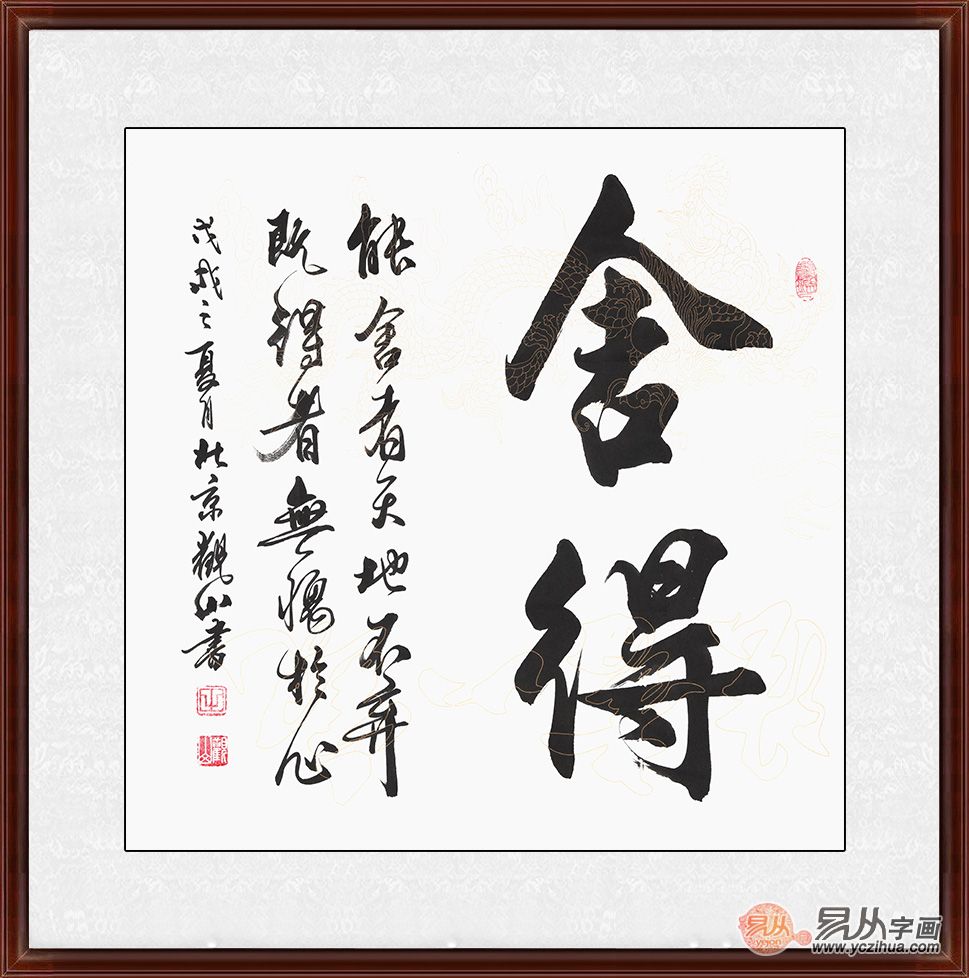 舍得
能舍者天地不弃
既得者無愧於心
戊戌之夏月北京觀山書
易从
yicon
易从字画
www.yczihua.com